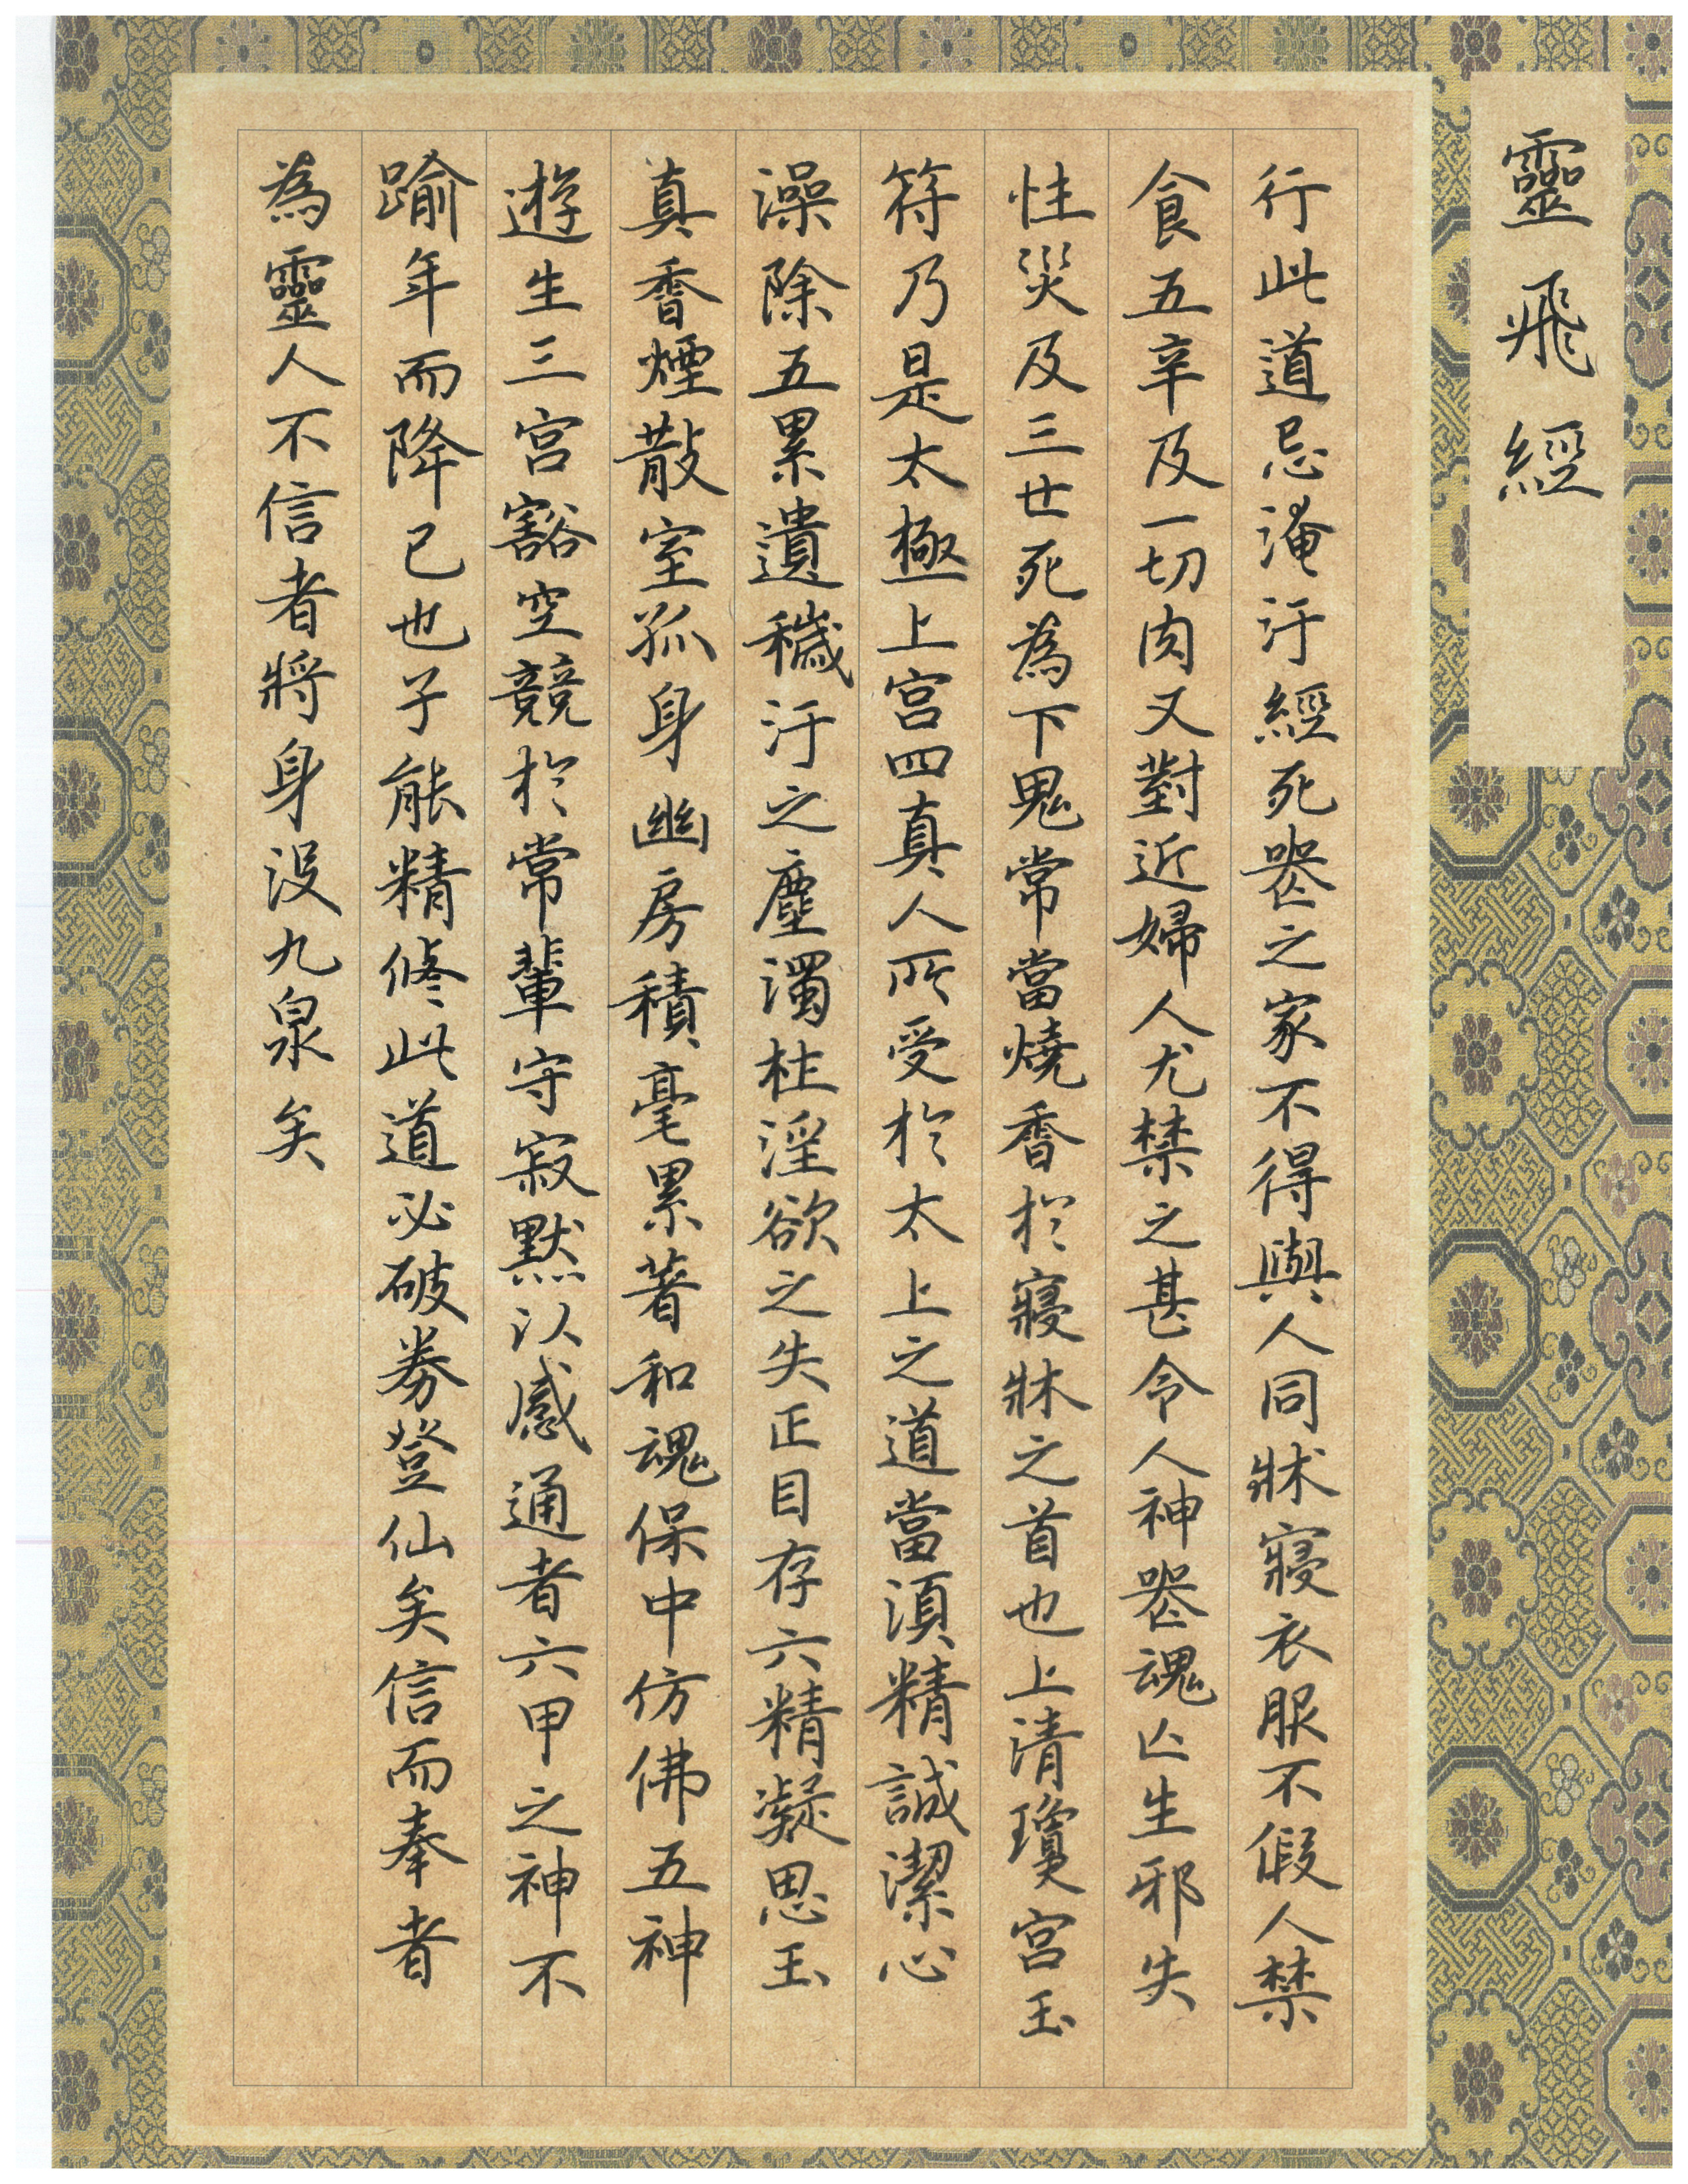 靈飛經
行此道忌淹汙經死喪之家不得與人同牀寢衣服不假人禁
食五辛及一切肉又對近婦人尤禁之甚令人神喪魂亡生邪失
性災及三世死為下鬼常當燒香於寢牀之首也上清瓊宮玉
符乃是太極上宮四真人所受於太上之道當須精誠潔心
澡除五累遺穢汙之塵濁杜淫欲之失正目存六精凝思玉
真香煙散室孤身幽房積毫累著和魂保中仿佛五神
遊生三宮豁空競於常輩守寂默以感通者六甲之神不
踰年而降己也子能精修此道必破券登仙矣信而奉者
為靈人不信者將身沒九泉矣